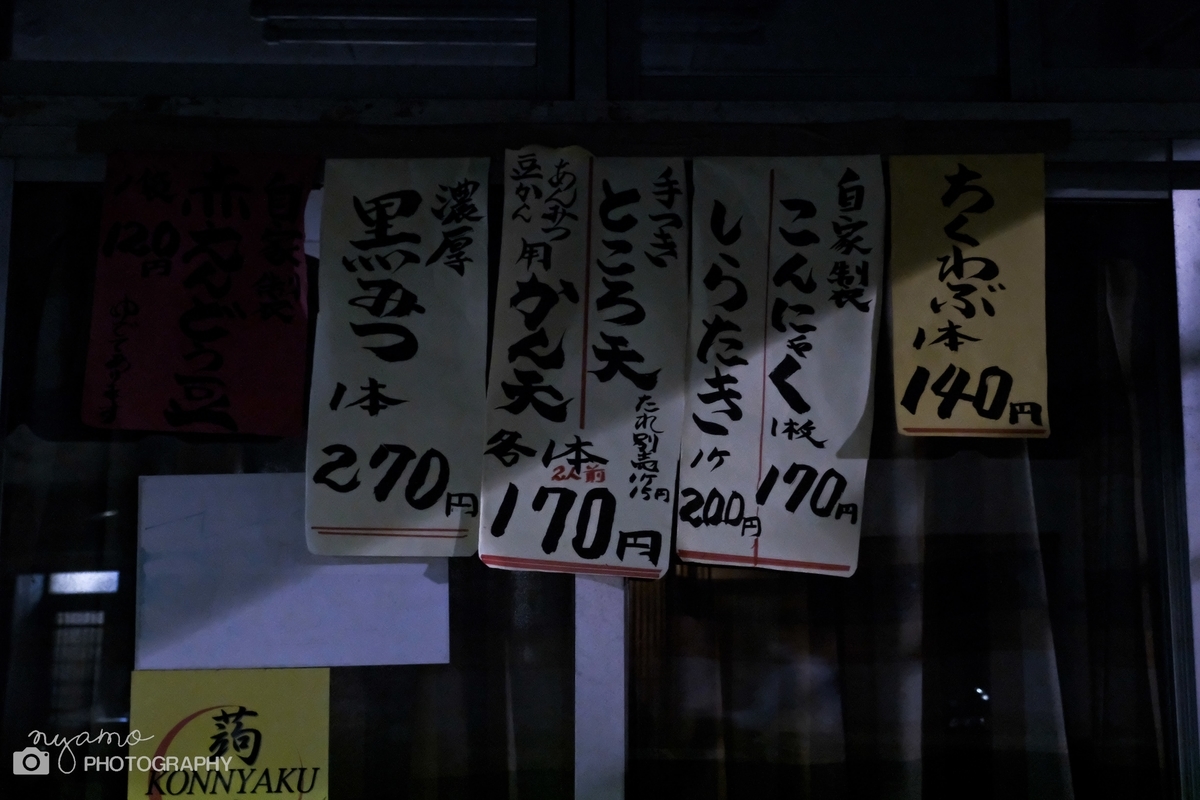 ちくわぶ
1本
140円
自家製
こんにゃく
1枚
170円
しらたき
1ケ
200円
手つき
ところ天
たれ別売
あんみつ
豆かん
用
かん天
各1本
2人前
170円
濃厚
黒みつ
1本
270円
自家製
赤えんどう豆
120円
蒟
KONNYAKU
nyamo
PHOTOGRAPHY